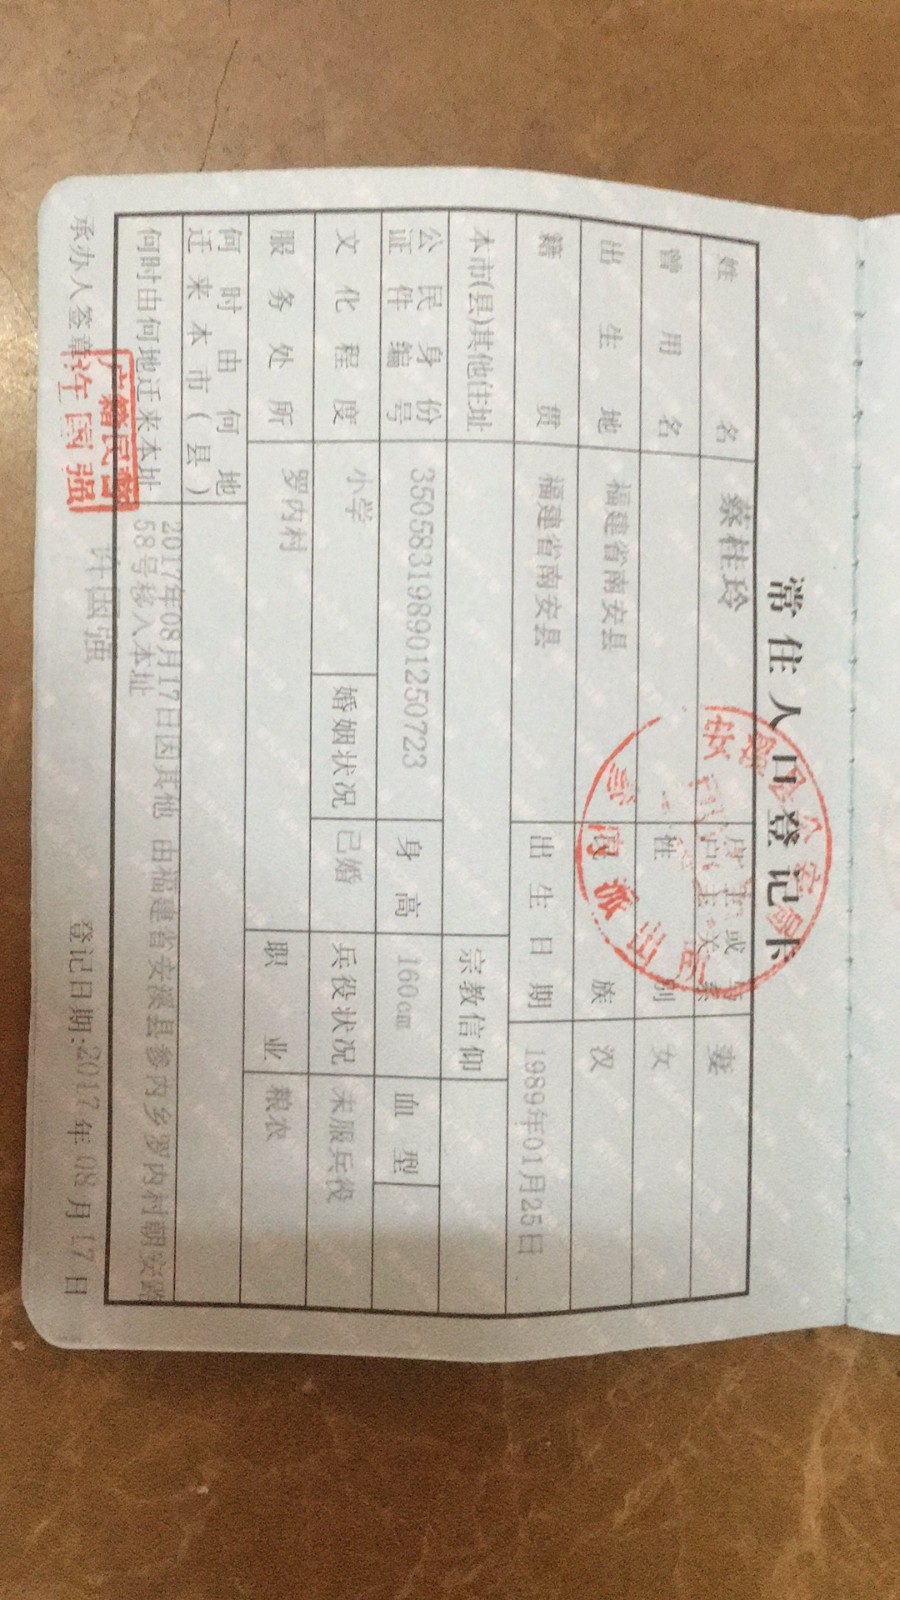 常住人口登记卡
姓名 蔡桂玲 户主或与户主关系 妻
曾用名 性别 女
出生地 福建省南安县 民族 汉
籍贯 福建省南安县 出生日期 1989年01月25日
本市(县)其他住址 宗教信仰
公民身份证件编号 350583198901250723 身高 160cm 血型
文化程度 小学 婚姻状况 已婚 兵役状况 未服兵役
服务处所 罗内村 职业 粮农
何时由何地迁来本市(县)
何时由何地迁来本址 2017年08月17日因其他 由福建省安溪县参内乡罗内村朝安路
58号移入本址
承办人签章: 户籍民警
许国强
许国强 登记日期:2017年08月17日